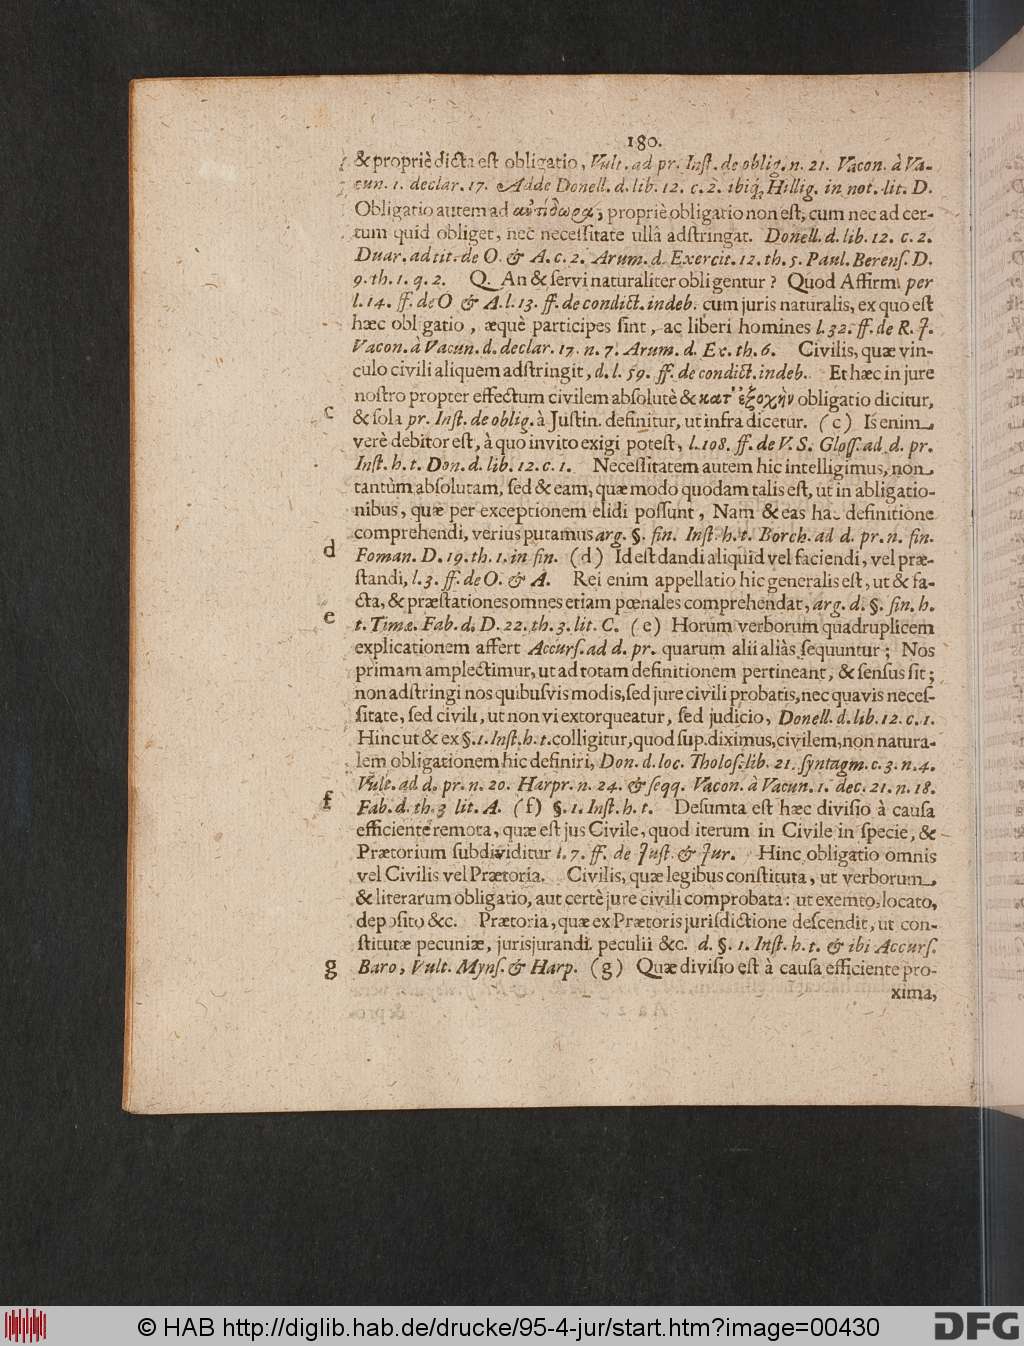 180.
& propriè dicta est obligatio, Vult. ad pr. Inst. de oblig. n. 21. Vacon. à Va-
cun. 1. declar. 17. Adde Donell. d. lib. 12. c. 2. ibiq; Hillig. in not. lit. D.
Obligatio autem ad ἀντίδωρα, propriè obligatio non est, cum nec ad cer-
tum quid obliget, nec necessitate ullâ adstringat. Donell. d. lib. 12. c. 2.
Duar. ad tit. de O. & A. c. 2. Arum. d. Exercit. 12. th. 5. Paul. Berens. D.
9. th. 1. q. 2. Q. An & servi naturaliter obligentur? Quod Affirm. per
l. 14. ff. de O & A. l. 13. ff. de condict. indeb. cum juris naturalis, ex quo est
hæc obligatio, æquè participes sint, ac liberi homines l. 32. ff. de R. J.
Vacon. à Vacun. d. declar. 17. n. 7. Arum. d. Ex. th. 6. Civilis, quæ vin-
culo civili aliquem adstringit, d. l. 59. ff. de condict. indeb. Et hæc in jure
nostro propter effectum civilem absolutè & κατ' ἐξοχὴν obligatio dicitur,
c & sola pr. Inst. de oblig. à Justin. definitur, ut infra dicetur. (c) Is enim
verè debitor est, à quo invito exigi potest, l. 108. ff. de V. S. Gloss. ad d. pr.
Inst. h. t. Don. d. lib. 12. c. 1. Necessitatem autem hic intelligimus, non
tantùm absolutam, sed & eam, quæ modo quodam talis est, ut in abligatio-
nibus, quæ per exceptionem elidi possunt, Nam & eas hac definitione
comprehendi, verius putamus arg. §. fin. Inst. h. t. Borch. ad d. pr. n. fin.
d Foman. D. 19. th. 1. in fin. (d) Id est dandi aliquid vel faciendi, vel præ-
standi, l. 3. ff. de O. & A. Rei enim appellatio hic generalis est, ut & fa-
cta, & præstationes omnes etiam pœnales comprehendat, arg. d. §. fin. h.
e t. Timæ. Fab. d. D. 22. th. 3. lit. C. (e) Horum verborum quadruplicem
explicationem affert Accurs. ad d. pr. quarum alii aliàs sequuntur; Nos
primam amplectimur, ut ad totam definitionem pertineant, & sensus sit;
non adstringi nos quibusvis modis, sed jure civili probatis, nec quavis neces-
sitate, sed civili, ut non vi extorqueatur, sed judicio, Donell. d. lib. 12. c. 1.
Hinc ut & ex §. 1. Inst. h. t. colligitur, quod sup. diximus, civilem, non natura-
lem obligationem hic definiri, Don. d. loc. Tholos. lib. 21. syntagm. c. 3. n. 4.
Vult. ad d. pr. n. 20. Harpr. n. 24. & seqq. Vacon. à Vacun. 1. dec. 21. n. 18.
f Fab. d. th. 3 lit. A. (f) §. 1. Inst. h. t. Desumta est hæc divisio à causa
efficiente remota, quæ est jus Civile, quod iterum in Civile in specie, &
Prætorium subdividitur l. 7. ff. de Just. & Jur. Hinc obligatio omnis
vel Civilis vel Prætoria. Civilis, quæ legibus constituta, ut verborum,
& literarum obligatio, aut certè jure civili comprobata: ut exemto, locato,
deposito &c. Prætoria, quæ ex Prætoris jurisdictione descendit, ut con-
stitutæ pecuniæ, jurisjurandi, peculii &c. d. §. 1. Inst. h. t. & ibi Accurs.
g Baro, Vult. Myns. & Harp. (g) Quæ divisio est à causa efficiente pro-
xima,
© HAB http://diglib.hab.de/drucke/95-4-jur/start.htm?image=00430
DFG